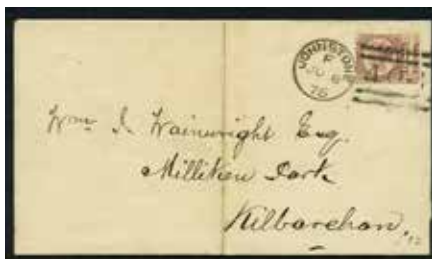 JOHNSTONE
F
JU 6
76
Wm J. Wainwright Esq.
Milliken Park
Kilbarchan.